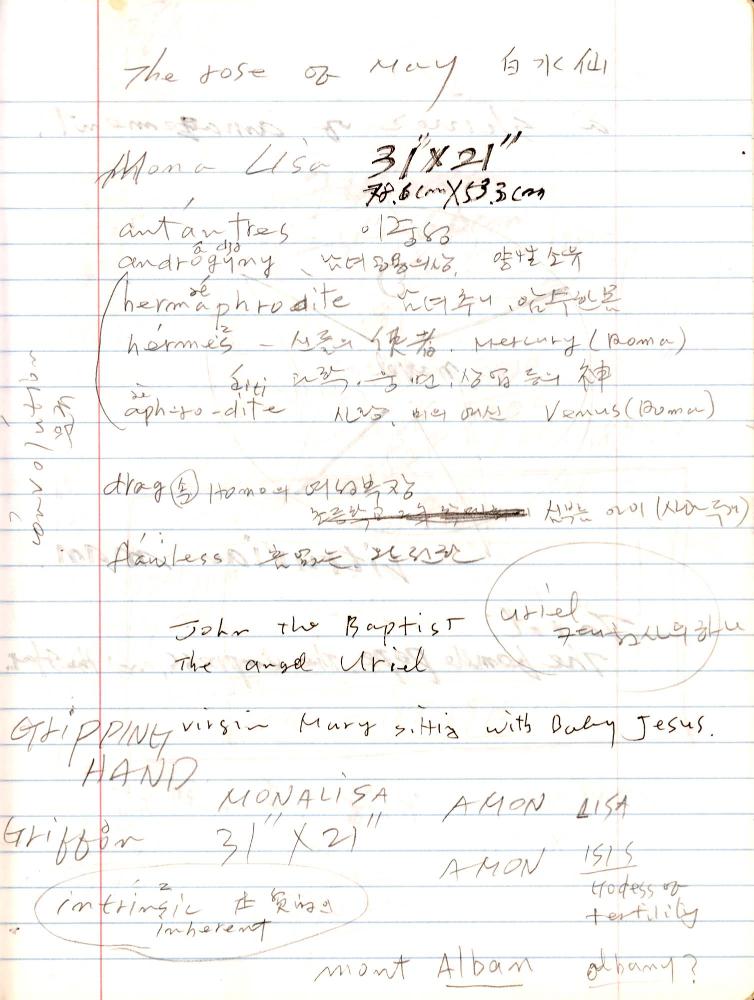 The rose of May 白水仙
Mona Lisa 31"X21"
78.6cmX53.3cm
antántres
andrógyny 양성소유
hermáphrodite 암수한몸
hérmes - 신들의 使者. Mercury (Roma)
과학, 웅변, 상업 등의 神
áphro-dite 사랑, 미의 여신 Venus (Roma)
drag 속 Homo의 여성복장
심부름 아이
fláwless 흠없는, 완전한
John the Baptist
The angel Uriel
uriel
구대천사의 하나
GRIPPING
HAND
virgin Mary sittig with Baby Jesus.
MONALISA
31"X21"
AMON LISA
AMON ISIS
Godess of
tertility
Griffon
intrinsic 本質的의
inherent
mont Alban albany?